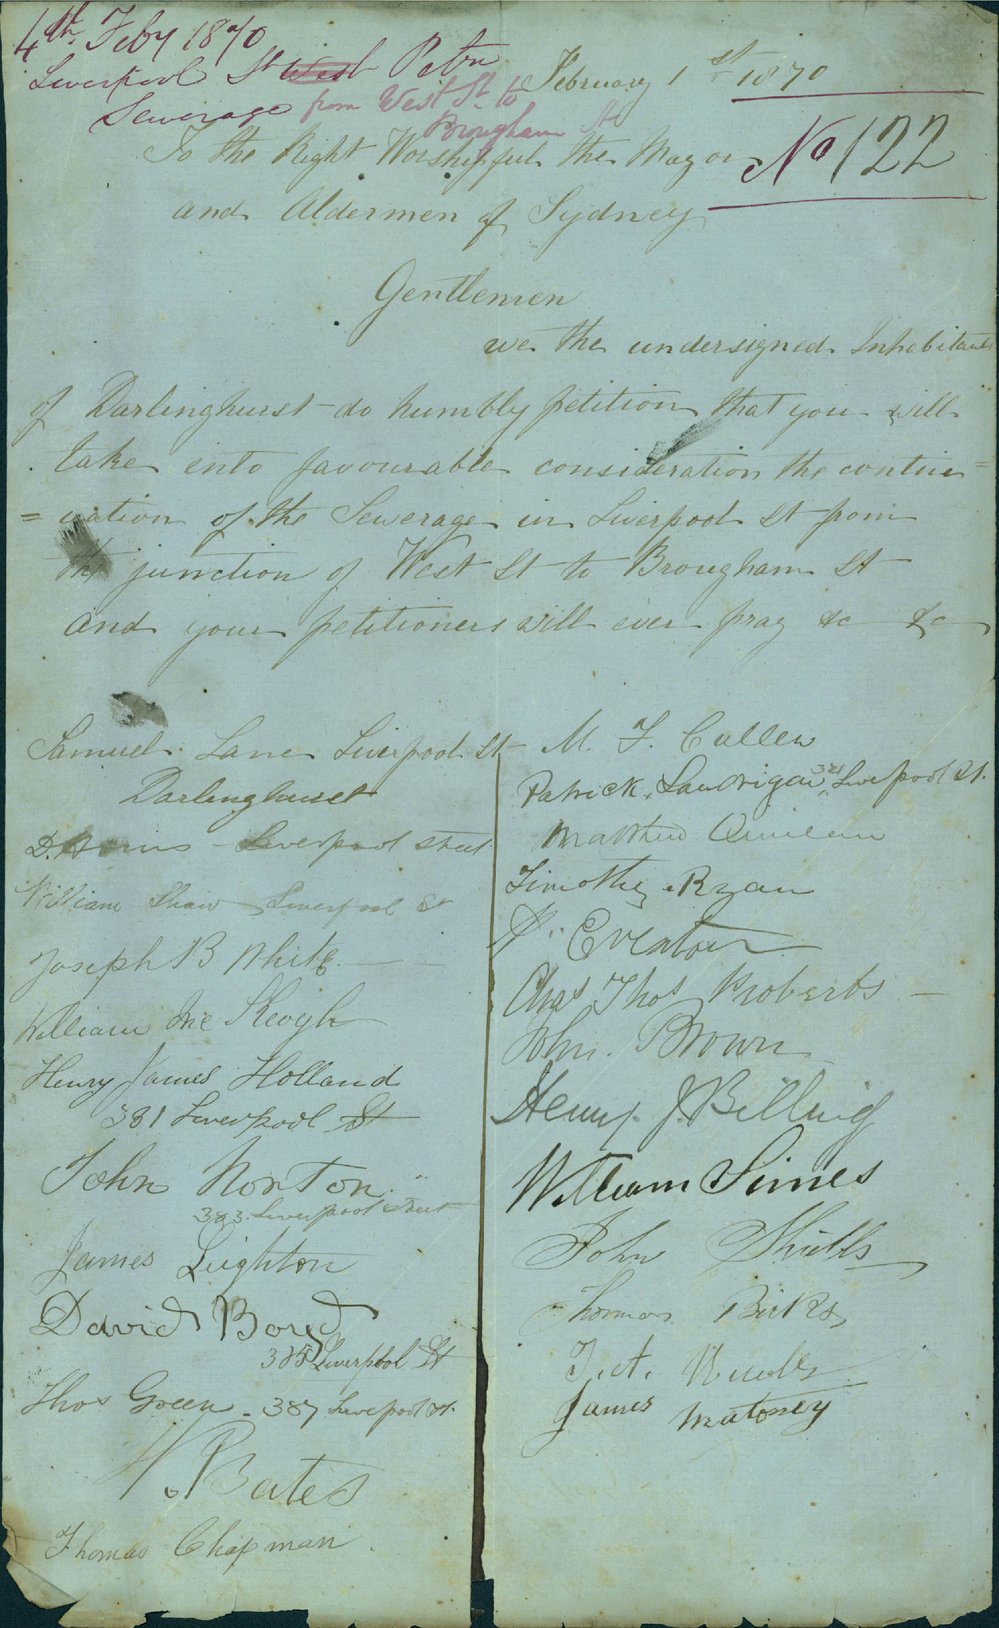 4th Feby 1870
Liverpool St West Petn
Sewerage from West St to
Brougham St
February 1st 1870
No 122
To the Right Worshipful the Mayor
and Aldermen of Sydney
Gentlemen
we the undersigned Inhabitants
of Darlinghurst do humbly petition that you will
take into favourable consideration the contin=
=uation of the Sewerage in Liverpool St from
the junction of West St to Brougham St
and your petitioners will ever pray &c &c
Samuel Lane Liverpool St
Darlinghurst
D. Liverpool Street
William Shaw Liverpool St
Joseph B White
William Mc Keogh
Henry James Holland
381 Liverpool St
John Norton
383 Liverpool Street
James Leighton
David Boyd
385 Liverpool St
Thos Green. 387 Liverpool St.
W. Bates
Thomas Chapman.
M. F. Cullen
Patrick Landrigan 321 Liverpool St.
Matthew
Timothy Ryan
Chas Thos Roberts
John Brown
Henry J. Billing
William Simes
John Shiells
Thomas Birks
James Matoney